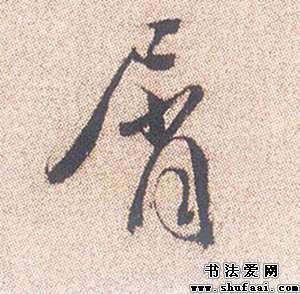 屑
书法爱网
www.shufaai.com